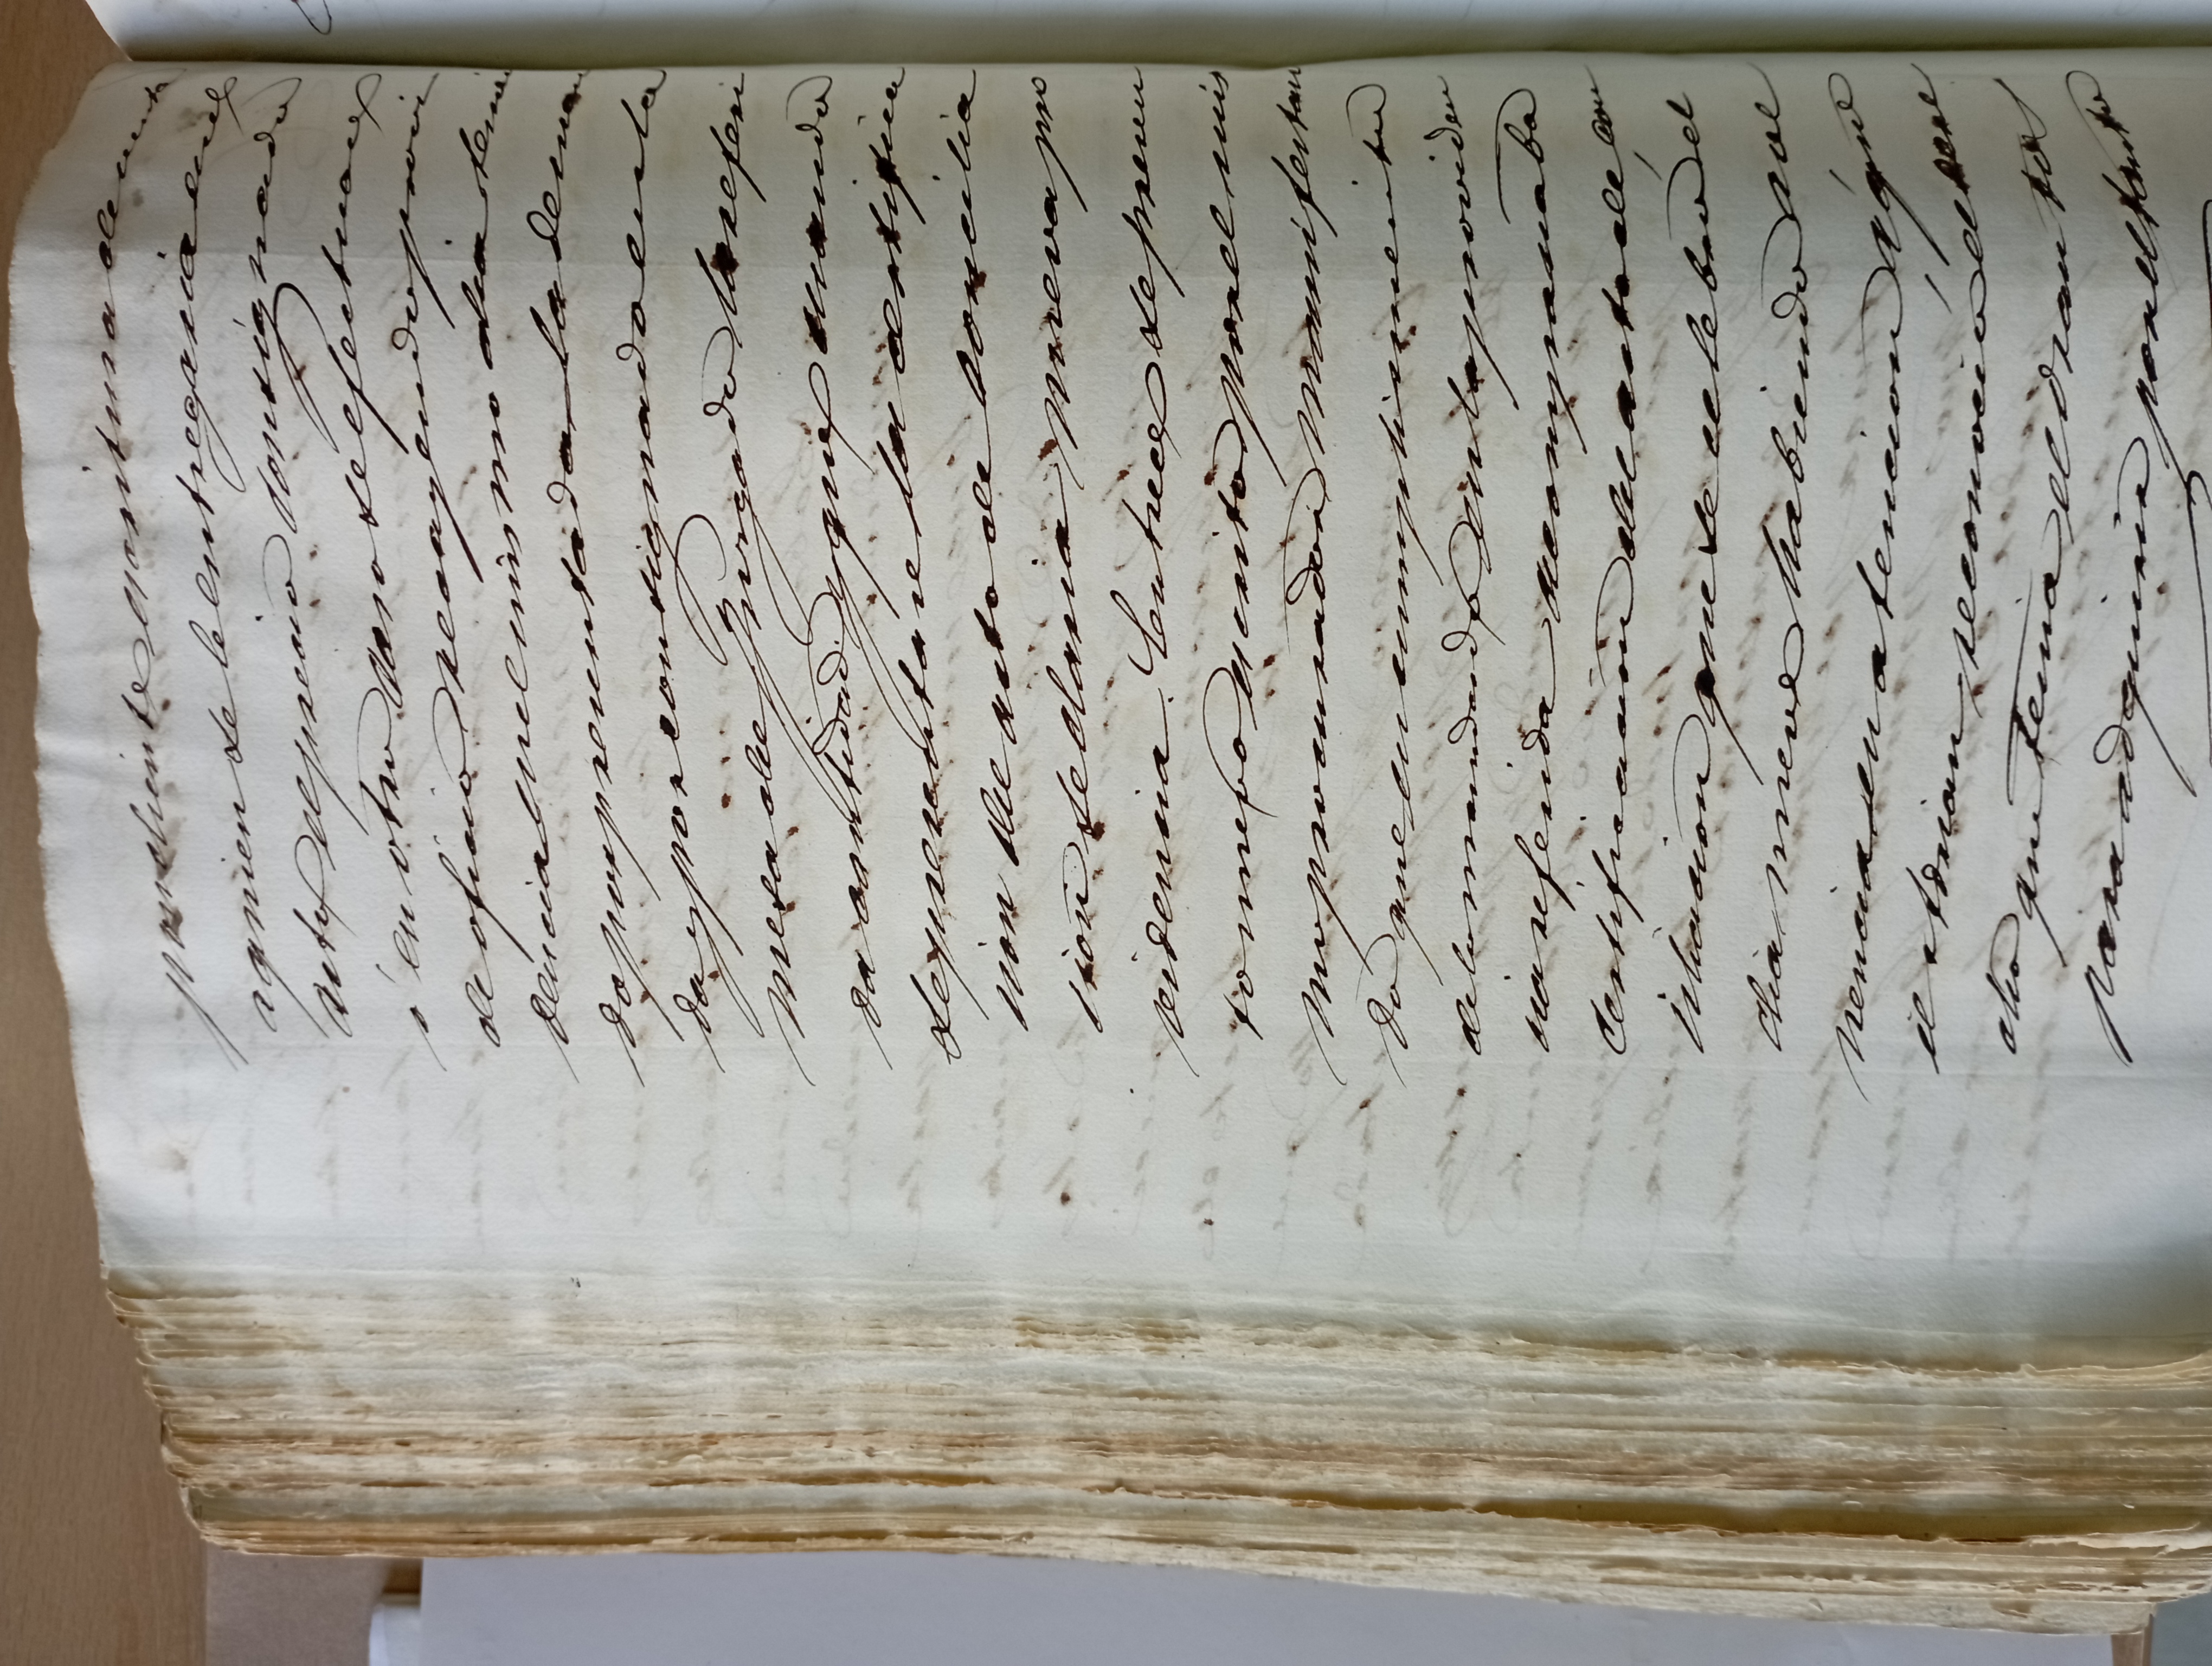 pondiente escritura de venta
a quien se le entregaria en el
acto el precio consignado
ó en otro caso se efectuare
de oficio recayendo provi
dencia en el mismo dia tenien
do por presentada la deman
da y por consignado en la
mesa del Juzgado la referi
da cantidad y que cuando
se presentare la certifica
cion del acto de concilia
cion se daria nueva pro
videncia. En trece se presen
to nuevo escrito por el mis
mo procurador manifestan
do que en cumplimiento
de lo mandado en la providen
cia referida acompanaba
certificacion del acto de con
ciliacion que se celebró el
dia nueve habiendo ave
nencia en atencion á que
el Adrian reconoció el dere
cho que tenia el Santos
para adquirir por el tanto